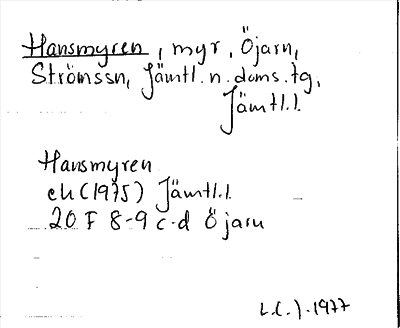 Hansmyren, myr, Öjarn,
Strömssn, Jämtl. n. doms. tg,
Jämtl.l.
Hansmyren
ek (1975) Jämtl.l.
20 F 8-9 c-d Öjarn
L.C.).1977